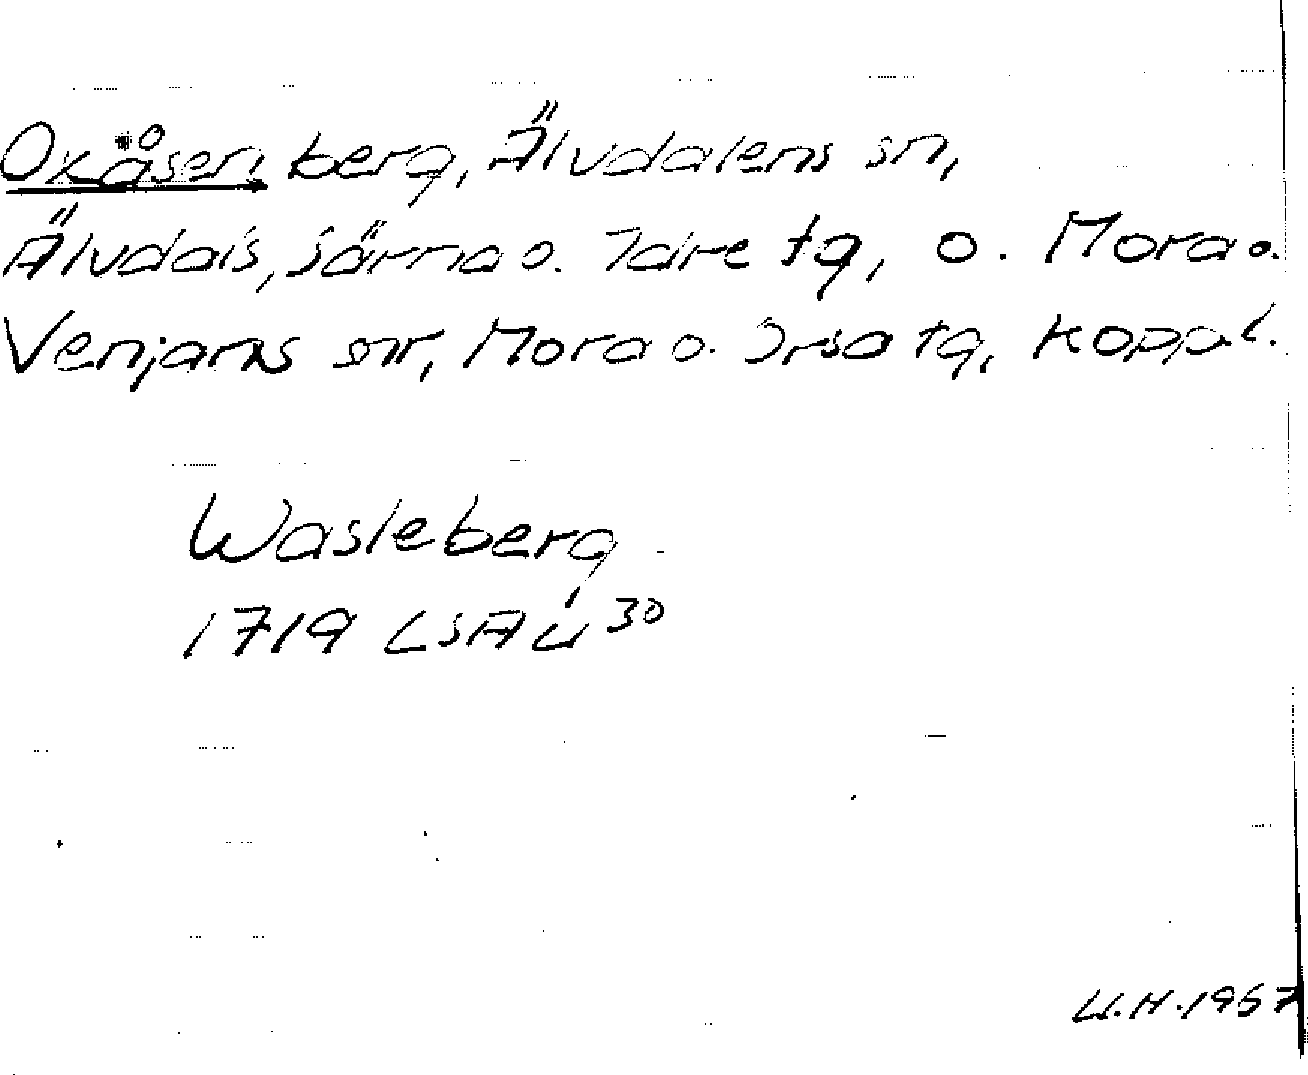 Oxåsen berg, Älvdalens sn,
Älvdals, Särna o. Idre tg, o. Mora o.
Venjans snr, Mora o. Orsa tg, Koppl.
Wasleberg
1719 LSA Ü 30
U.H. 1967